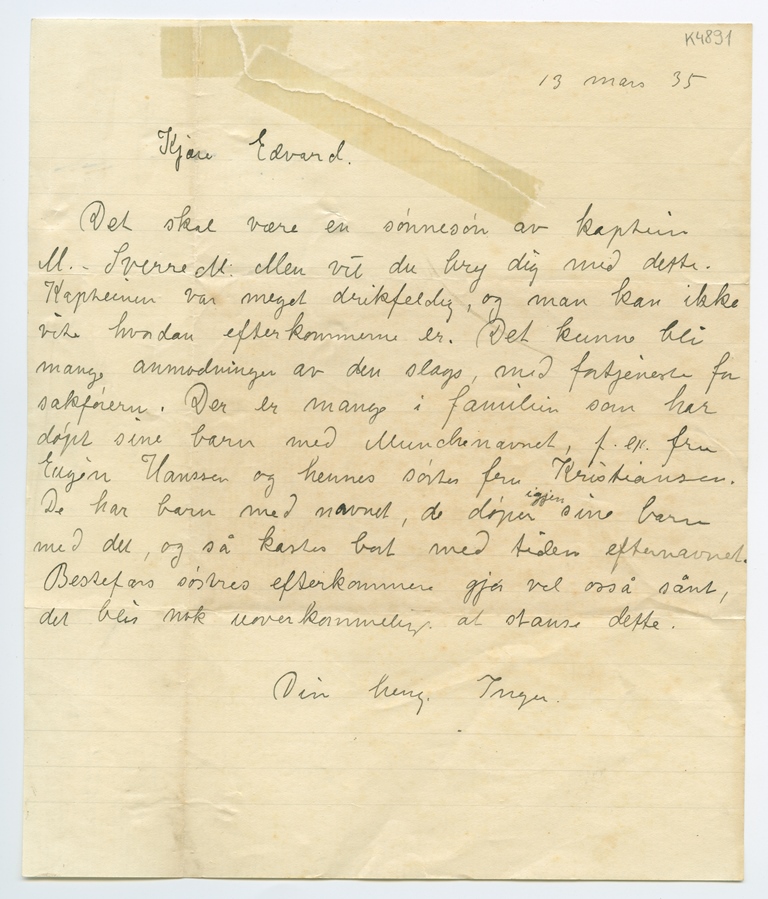 K4891
13 mars 35
Kjære Edvard.
Det skal være en sønnesøn av kaptein
M. - Sverre M. Men vil du bry dig med dette.
Kapteinen var meget drikfeldig, og man kan ikke
vite hvordan efterkommerne er. Det kunne bli
mange anmodninger av den slags, med fortjeneste for
sakførern. Der er mange i familien som har
døpt sine barn med Munchnavnet, f. ex. fru
Eugen Hanssen og hennes søster fru Kristiansen.
De har barn med navnet, de døper igjen sine barn
med det, og så kastes bort med tiden efternavnet.
Bestefars søstres efterkommere gjør vel også sånt,
det blir nok uoverkommelig at stanse dette.
Din heng. Inger.